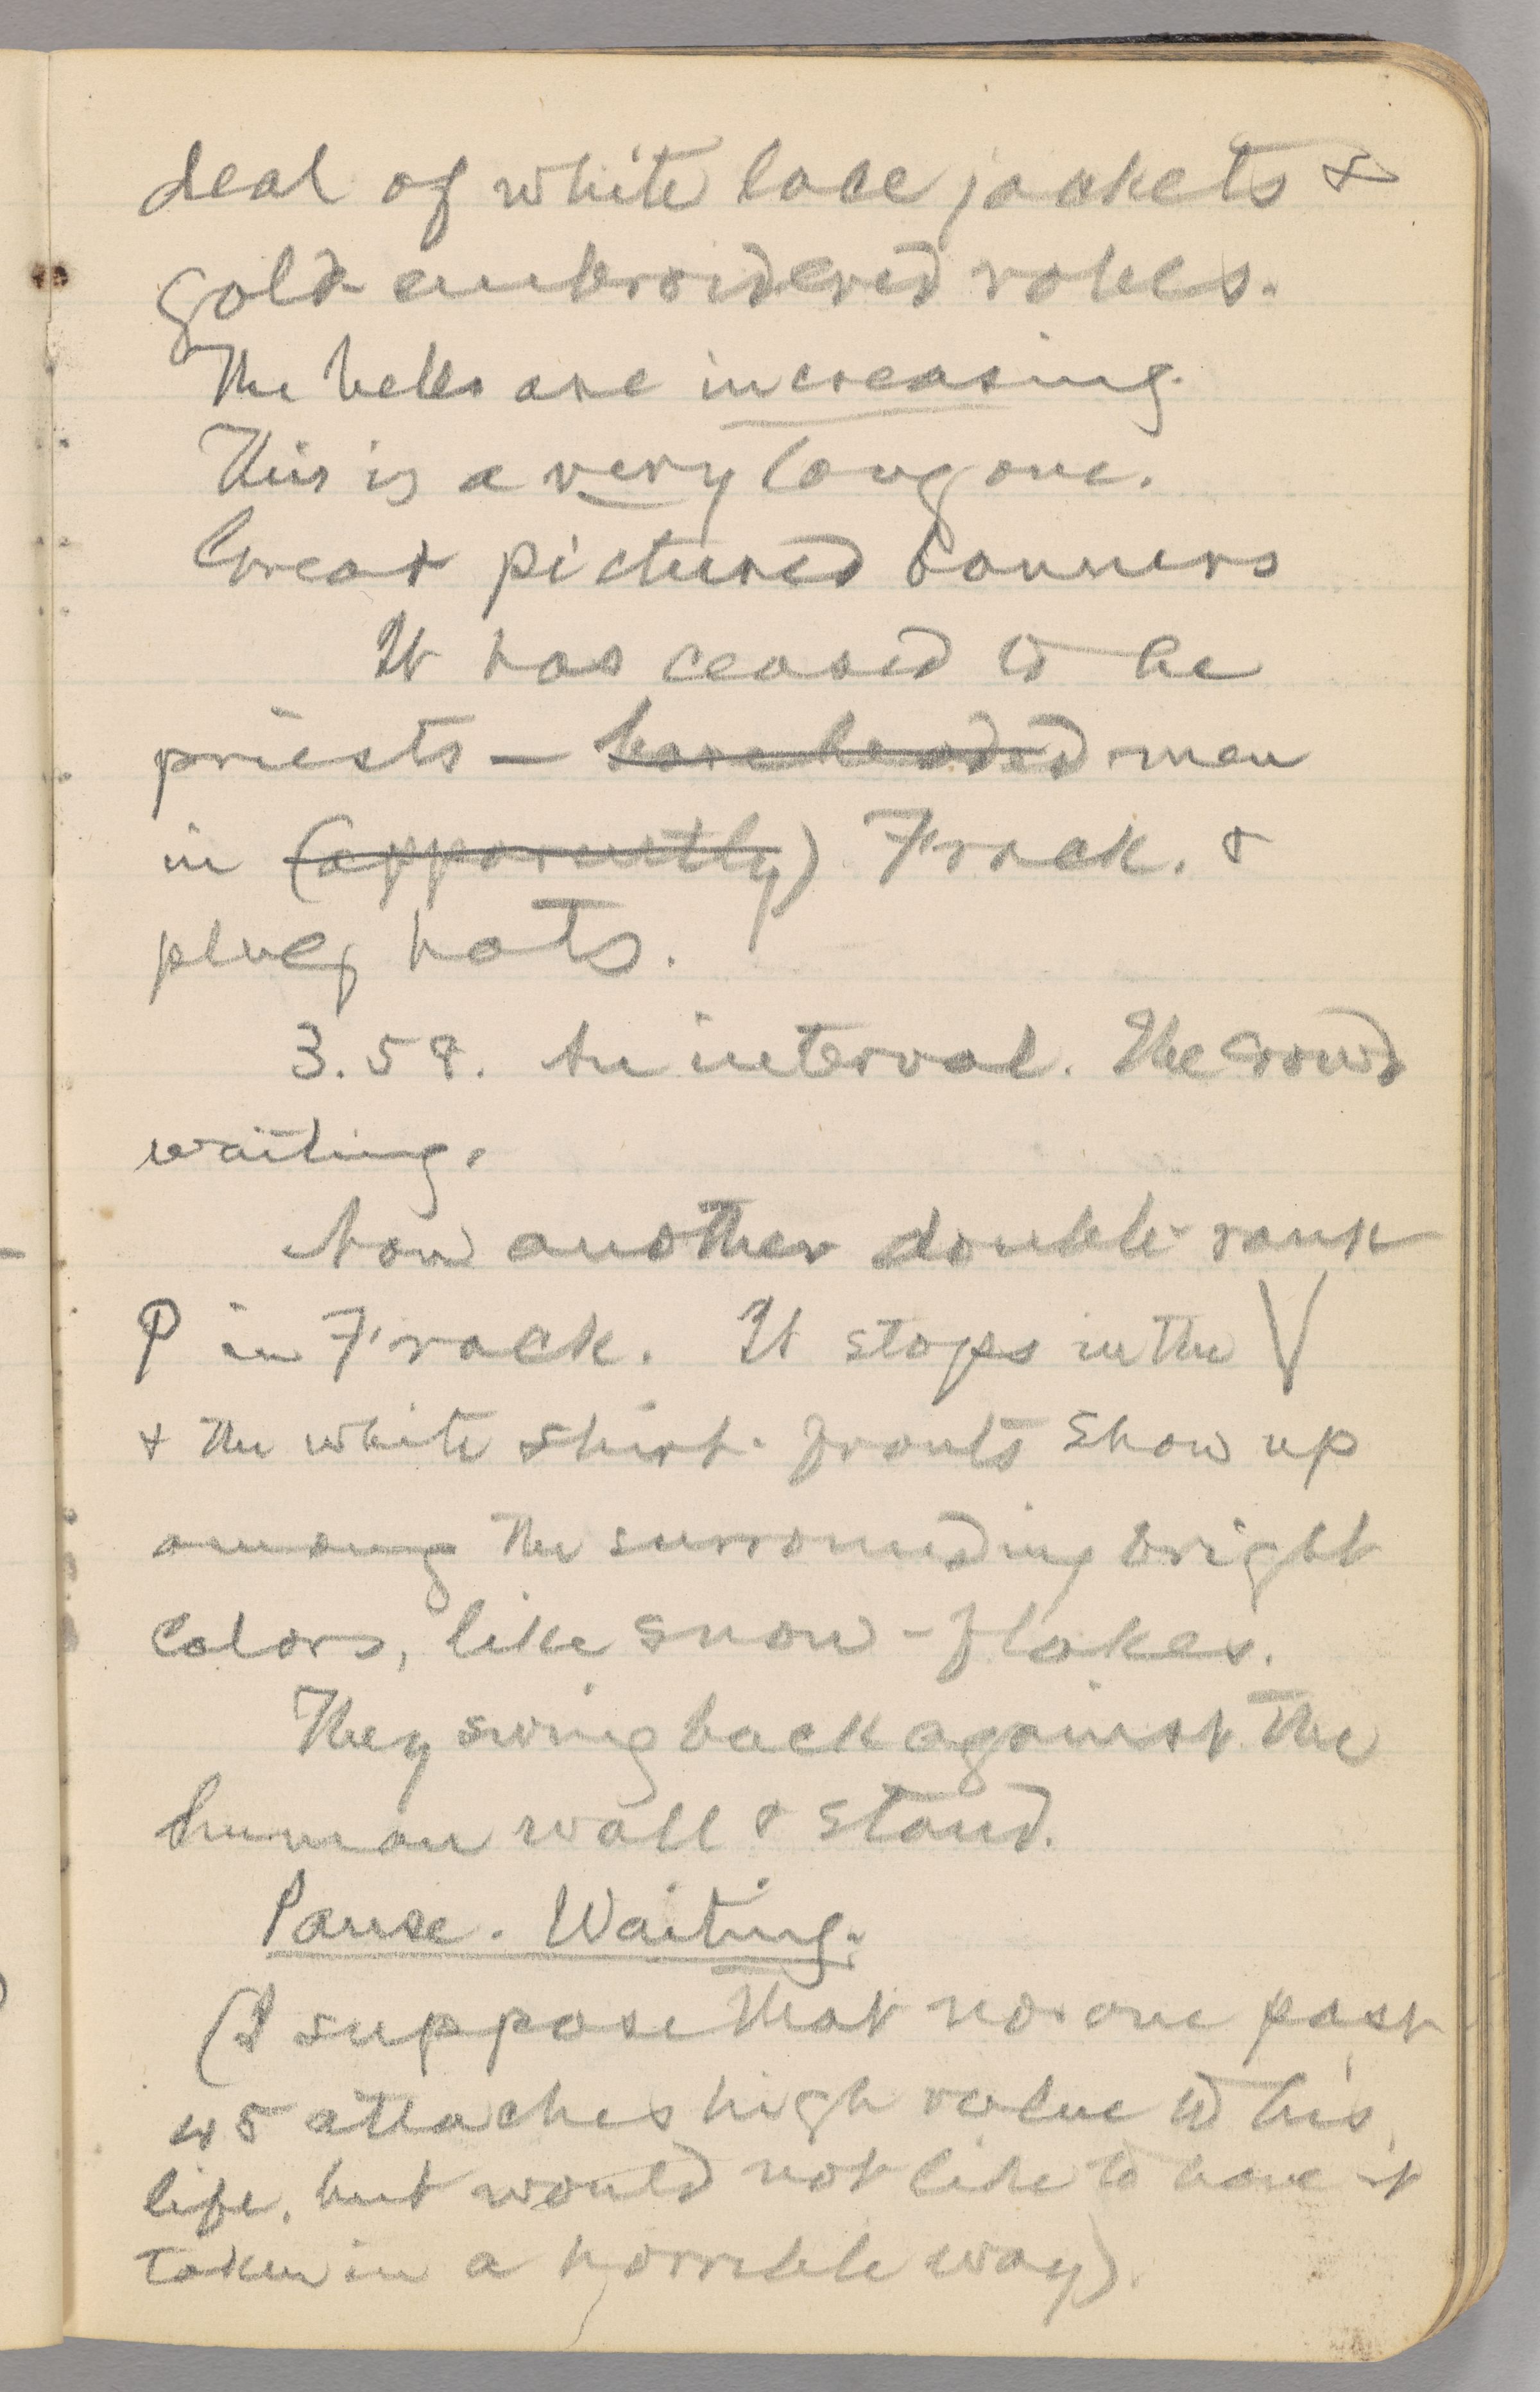 deal of white lace jackets &
gold-embroidered robes.
The bells are increasing.
This is a very long one.
Great pictured banners
It has ceased to be
priests — bareheaded men
in (apparently) Frack. &
plug hats.
3.58. An interval. The crowd
waiting.
Now another double-rank
P in Frack. It stops in the V
& the white shirt-fronts show up
among the surrounding bright
colors, like snow-flakes.
They swing back against the
human wall & stand.
Pause. Waiting.
(I suppose that no one past
45 attaches high value to his
life, but would not like to have it
taken in a horrible way).